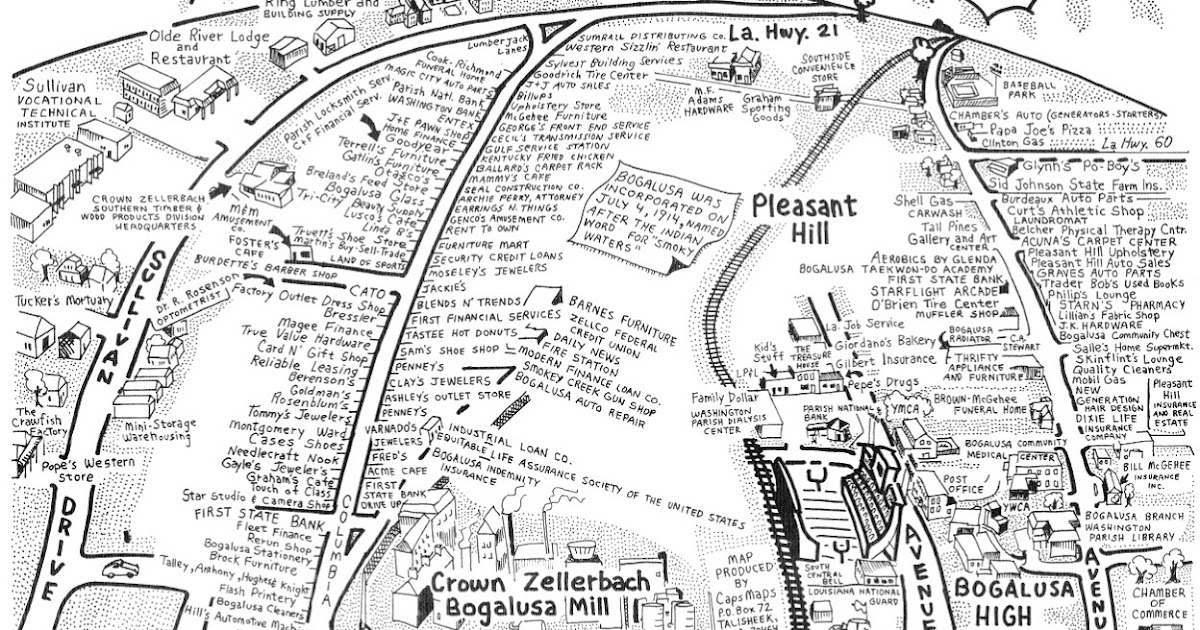 Ring Lumber and
BUILDING SUPPLY
Olde River Lodge
and
Restaurant
Sullivan
VOCATIONAL
TECHNICAL
INSTITUTE
CROWN ZELLERBACH
SOUTHERN TIMBER &
WOOD PRODUCTS DIVISION
HEADQUARTERS
Tucker's Mortuary
The
Crawfish
Factory
Pope's Western
Store
Mini-Storage
Warehousing
SULLIVAN
DRIVE
Lumberjack
Lanes
Cook-Richmond
FUNERAL HOME
MAGIC CITY AUTO PARTS
Parish Nat'l Bank
WASHINGTON BANK
ENTEX
Parish Locksmith Serv.
C+T Financial Serv.
J+E PAWN SHOP
HOME FINANCE
Goodyear
Terrell's Furniture
Gatlin's Furniture
Otasco's
Breland's Feed Store
Bogalusa Glass
Tri-City Beauty Supply
Lusco's Cafe
Linda B's
M&M
AMUSEMENT
CO.
Truett's Shoe Store
Martin's Buy-Sell-Trade
LAND OF SPORTS
FOSTER'S
CAFE
BURDETTE'S BARBER SHOP
Dr. R. Rosenson
OPTOMETRIST
CATO
Factory Outlet Dress Shop
Bressler
Magee Finance
True Value Hardware
Card N' Gift Shop
Reliable Leasing
Berenson's
Goldman's
Rosenblum's
Tommy's Jewelers
Montgomery Ward
Cases Shoes
Needlecraft Nook
Gayle's Jeweler's
Graham's Cafe
Touch of Class
Star Studio & Camera Shop
FIRST STATE BANK
Fleet Finance
Rerun Shop
Bogalusa Stationery
Brock Furniture
Talley, Anthony, Hughes & Knight
Flash Printery
Bogalusa Cleaners
Hill's Automotive Mach
COLUMBIA
SUMRALL DISTRIBUTING CO.
Western Sizzlin' Restaurant
Sylvest Building Services
Goodrich Tire Center
J+J AUTO SALES
Billups
Upholstery Store
McGehee Furniture
GEORGE'S FRONT END SERVICE
CECIL'S TRANSMISSION SERVICE
GULF SERVICE STATION
KENTUCKY FRIED CHICKEN
BALLARD'S CARPET RACK
MAMMY'S CAFE
SEAL CONSTRUCTION CO.
ARCHIE PERRY, ATTORNEY
EARRINGS N. THINGS
GENCO'S AMUSEMENT CO.
RENT TO OWN
FURNITURE MART
SECURITY CREDIT LOANS
MOSELEY'S JEWELERS
JACKIE'S
BLENDS N' TRENDS
FIRST FINANCIAL SERVICES
TASTEE HOT DONUTS
SAM'S SHOE SHOP
PENNEY'S
CLAY'S JEWELERS
ASHLEY'S OUTLET STORE
PENNEY'S
VARNADO'S
JEWELERS
FRED'S
ACME CAFE
FIRST
STATE BANK
DRIVE UP
BARNES FURNITURE
ZELLCO FEDERAL
CREDIT UNION
DAILY NEWS
FIRE STATION
MODERN FINANCE LOAN CO.
SMOKEY CREEK GUN SHOP
BOGALUSA AUTO REPAIR
INDUSTRIAL LOAN CO.
EQUITABLE LIFE ASSURANCE SOCIETY OF THE UNITED STATES
BOGALUSA INDEMNITY
INSURANCE
Crown Zellerbach
Bogalusa Mill
La. Hwy. 21
M.F.
Adams
HARDWARE
Graham
Sporting
Goods
SOUTHSIDE
CONVENIENCE
STORE
BOGALUSA WAS
INCORPORATED ON
JULY 4, 1914, NAMED
AFTER THE INDIAN
WORD FOR "SMOKY
WATERS"
Pleasant
Hill
BASEBALL
PARK
CHAMBER'S AUTO (GENERATORS-STARTERS)
Papa Joe's Pizza
Clinton Gas
La Hwy. 60
Glynn's Po-Boy's
Sid Johnson State Farm Ins.
Shell Gas
CARWASH
Tall Pines
Gallery and Art
CENTER
AEROBICS BY GLENDA
BOGALUSA TAEKWON-DO ACADEMY
FIRST STATE BANK
STARFLIGHT ARCADE
O'Brien Tire Center
MUFFLER SHOP
Burdeaux Auto Parts
Curt's Athletic Shop
LAUNDROMAT
Belcher Physical Therapy Cntr.
ACUNA'S CARPET CENTER
Pleasant Hill Upholstery
Pleasant Hill Auto Sales
GRAVES AUTO PARTS
Trader Bob's Used Books
Philip's Lounge
STARN'S PHARMACY
Lillian's Fabric Shop
J.K. HARDWARE
Bogalusa Community Chest
Salle's Home Supermkt.
Skinflint's Lounge
Quality Cleaners
Mobil Gas
NEW
GENERATION
HAIR DESIGN
DIXIE LIFE
INSURANCE
COMPANY
Pleasant
Hill
INSURANCE
AND REAL
ESTATE
La. Job Service
Giordano's Bakery
BOGALUSA
RADIATOR
C.A.
STEWART
Gilbert Insurance
THRIFTY
APPLIANCE
AND FURNITURE
Kid's
Stuff
THE
TREASURE
HOUSE
LP&L
Pepe's Drugs
Family Dollar
WASHINGTON
PARISH DIALYSIS
CENTER
PARISH NATIONAL
BANK
YMCA
BROWN-McGEHEE
FUNERAL HOME
BOGALUSA COMMUNITY
MEDICAL CENTER
BILL McGEHEE
INSURANCE
INC.
POST
OFFICE
YWCA
BOGALUSA BRANCH
WASHINGTON
PARISH LIBRARY
MAP
PRODUCED
BY
Caps Maps
P.O. Box 72
TALISHEEK,
SOUTH
CENTRAL
BELL
LOUISIANA NATIONAL
GUARD
AVENUE
BOGALUSA
HIGH
AVENU
CHAMBER
OF
COMMERCE